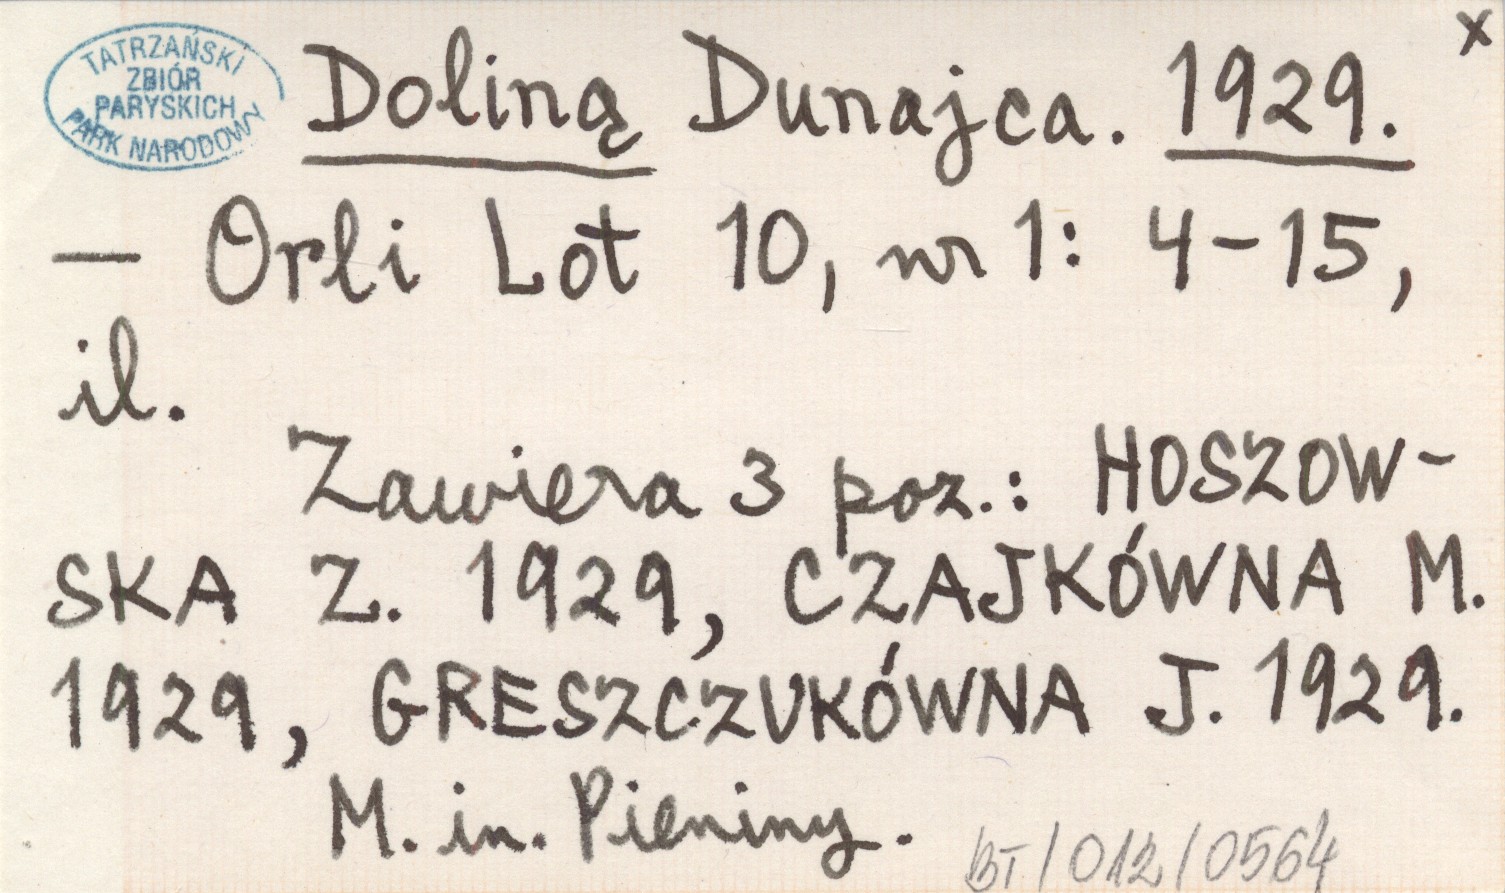 TATRZAŃSKI
ZBIÓR
PARYSKICH
PARK NARODOWY
x
Doliną Dunajca. 1929.
— Orli Lot 10, nr 1: 4-15,
il.
Zawiera 3 poz.: HOSZOW-
SKA Z. 1929, CZAJKÓWNA M.
1929, GRESZCZUKÓWNA J. 1929.
M. in. Pieniny.
BT/012/0564